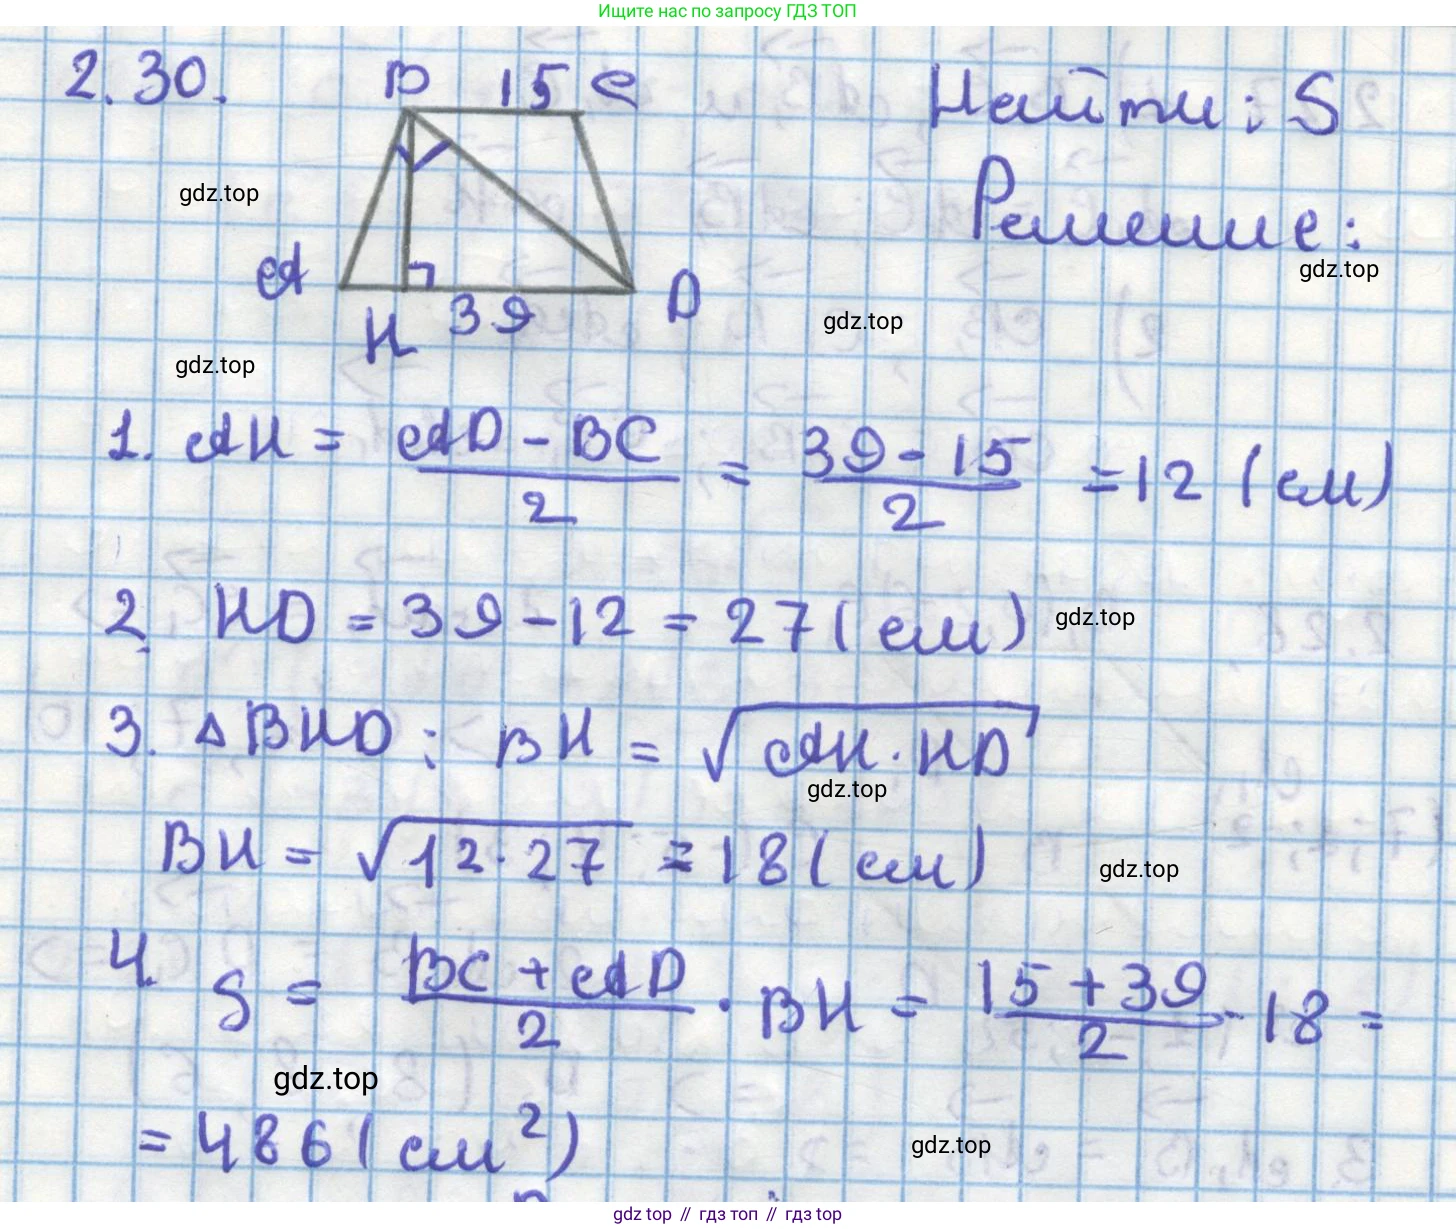 Ищите нас по запросу ГДЗ ТОП
2.30.
B 15 C
Найти: S
gdz.top
Решение:
A
D
gdz.top
H 39
gdz.top
gdz.top
1. AH = (AD - BC)/2 = (39 - 15)/2 = 12 (см)
2. HD = 39 - 12 = 27 (см)
gdz.top
3. △BHD: BH = √(AH · HD)
gdz.top
BH = √(12 · 27) = 18 (см)
gdz.top
4. S = (BC + AD)/2 · BH = (15 + 39)/2 · 18 =
gdz.top
= 486 (см²)
gdz.top
gdz top // гдз топ // гдз top